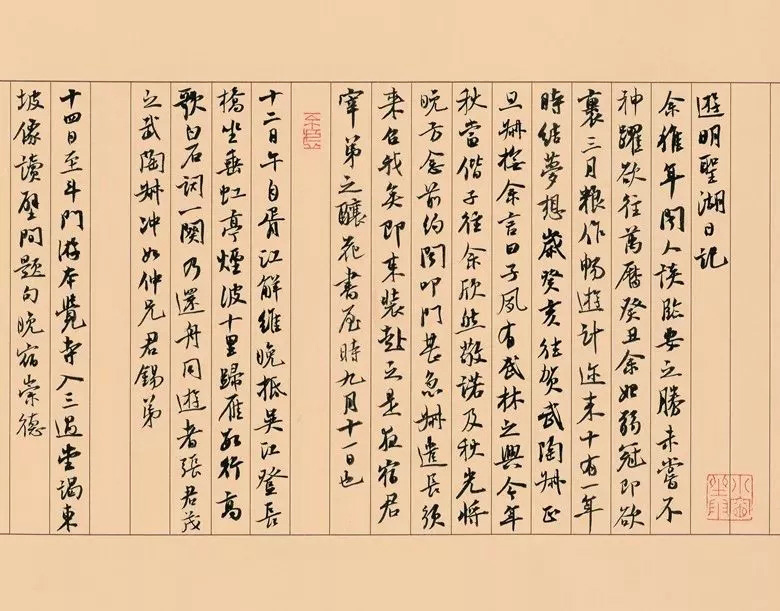 遊明聖湖日記
余稚年聞人談臨安之勝未嘗不
神躍欲往萬曆癸丑余始弱冠即欲
裹三月糧作暢遊計邇来十有一年
時結夢想歲癸亥往賀武陶叔正
旦叔控余言曰子夙有武林之興今年
秋當偕子往余欣然敬諾及秋光將
晚方念前約聞叩門甚急叔遣長須
来召我矣即束裝赴之是夜宿君
宰弟之釀花書屋時九月十一日也
十二日午自胥江解維晚抵吳江登長
橋坐垂虹亭煙波十里歸雁數行高
歌白石詞一闋乃還舟同遊者張君茂
之武陶叔冲如仲兄君錫弟
十四日至斗門游本覺寺入三過堂謁東
坡像讀壁間題句晚宿崇德